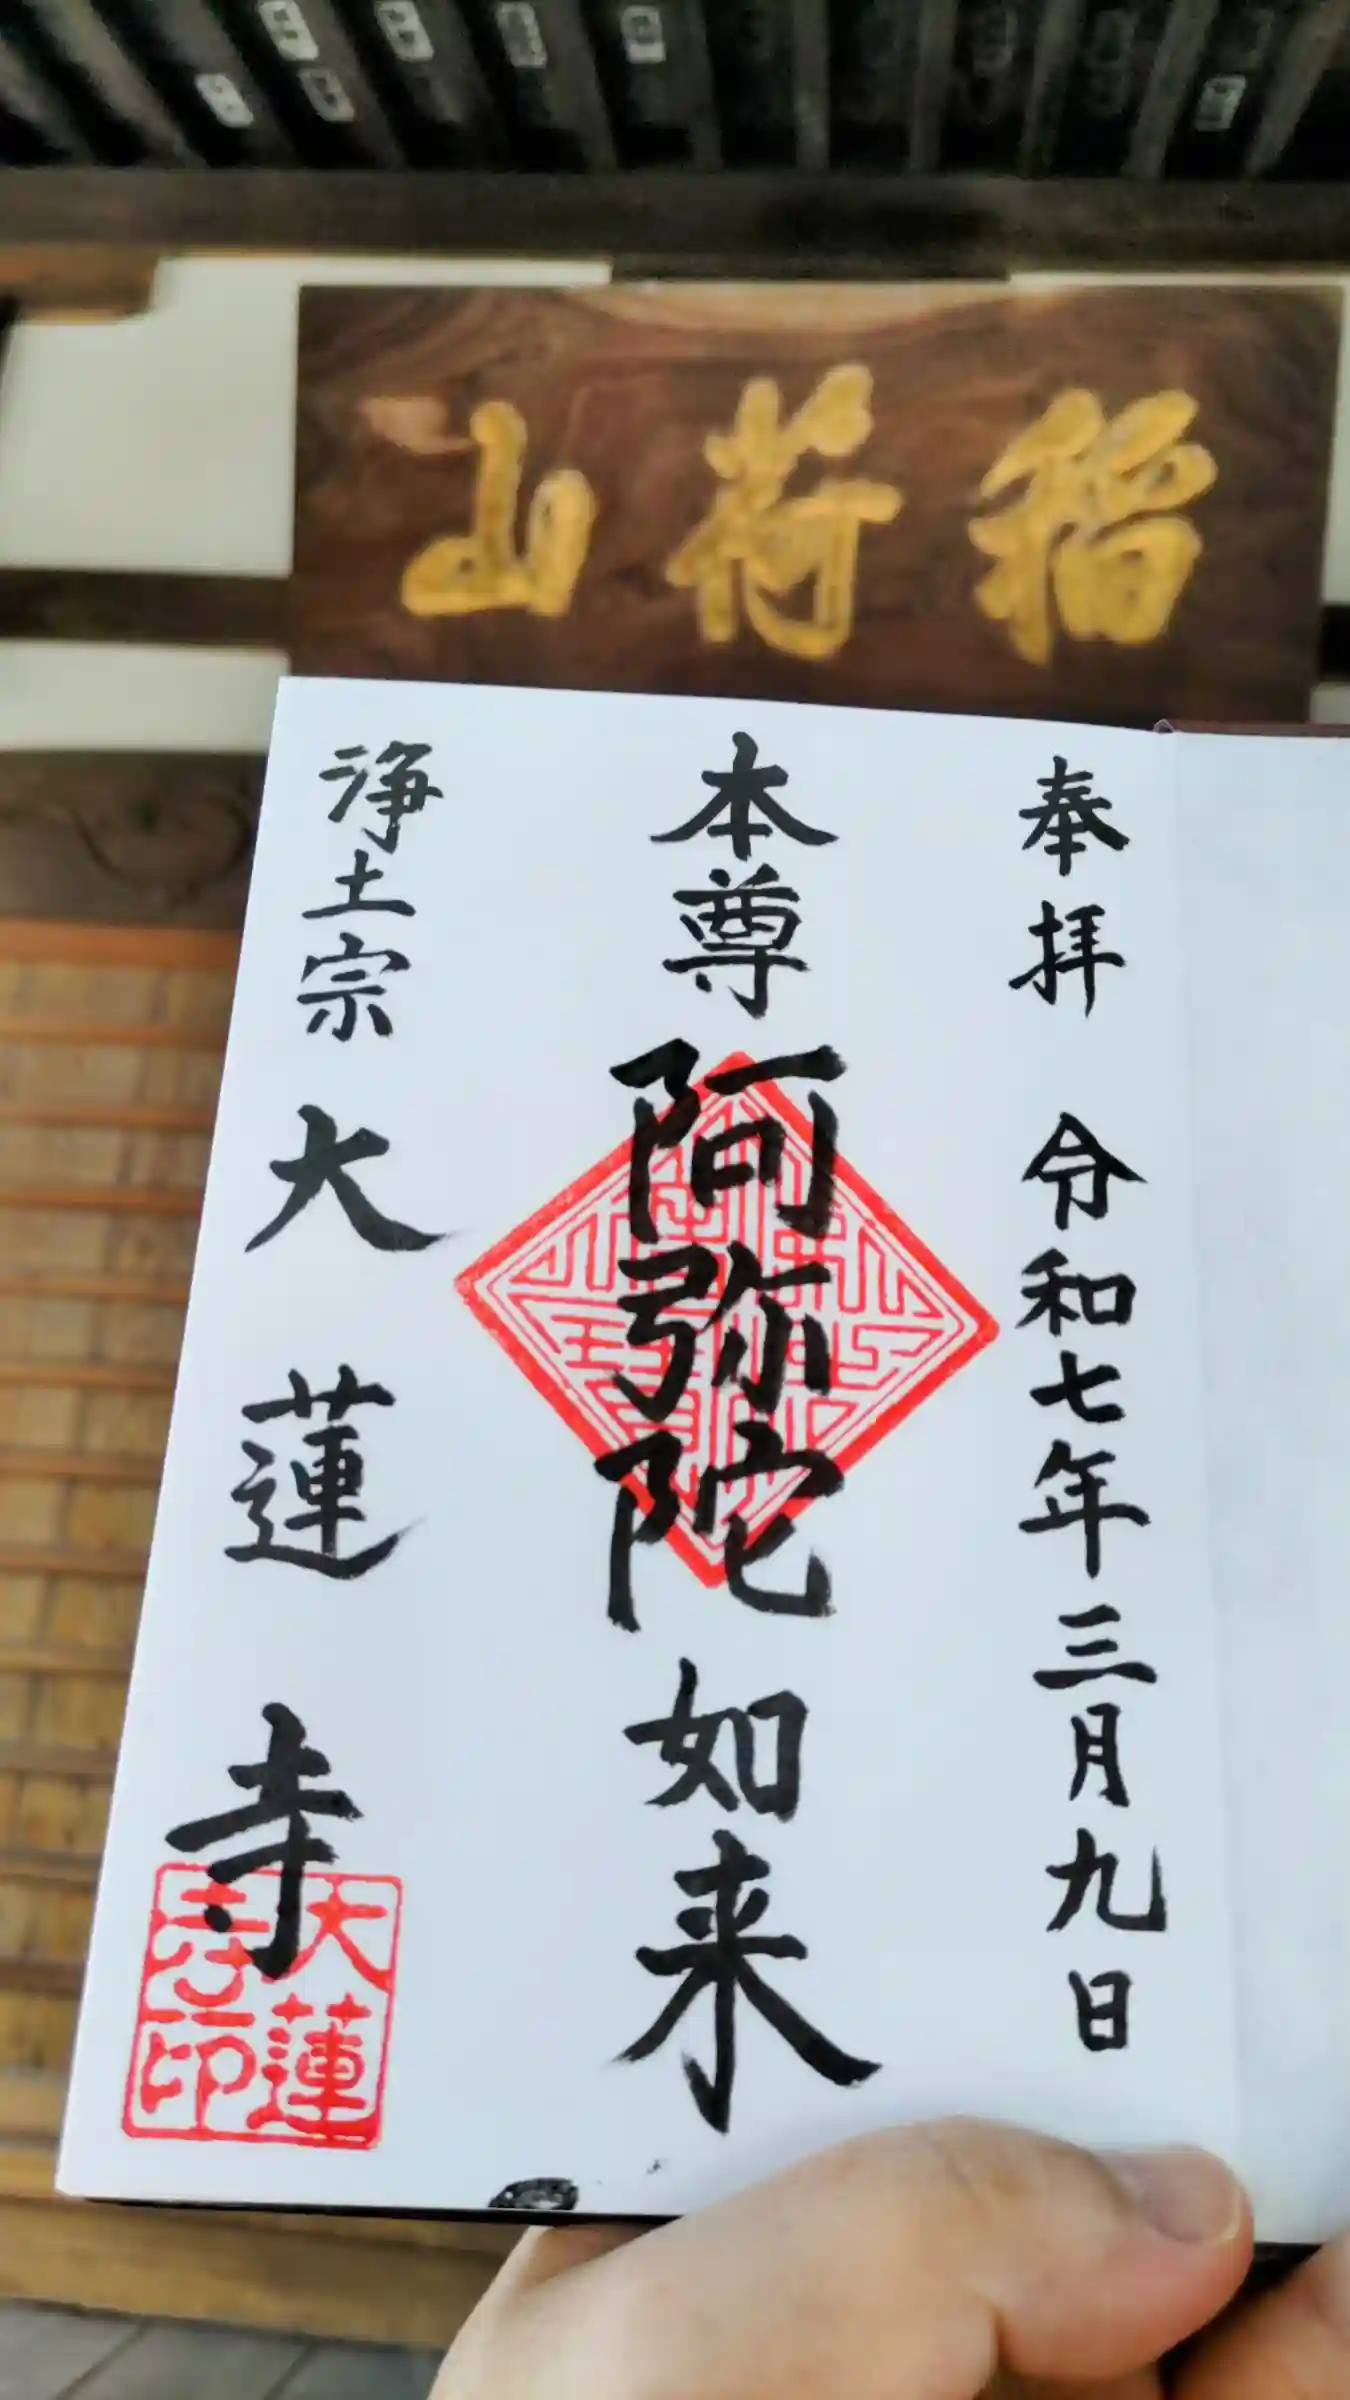 稻荷山
奉拝 令和七年三月九日
本尊 阿弥陀如来
浄土宗 大蓮寺
大蓮
寺印